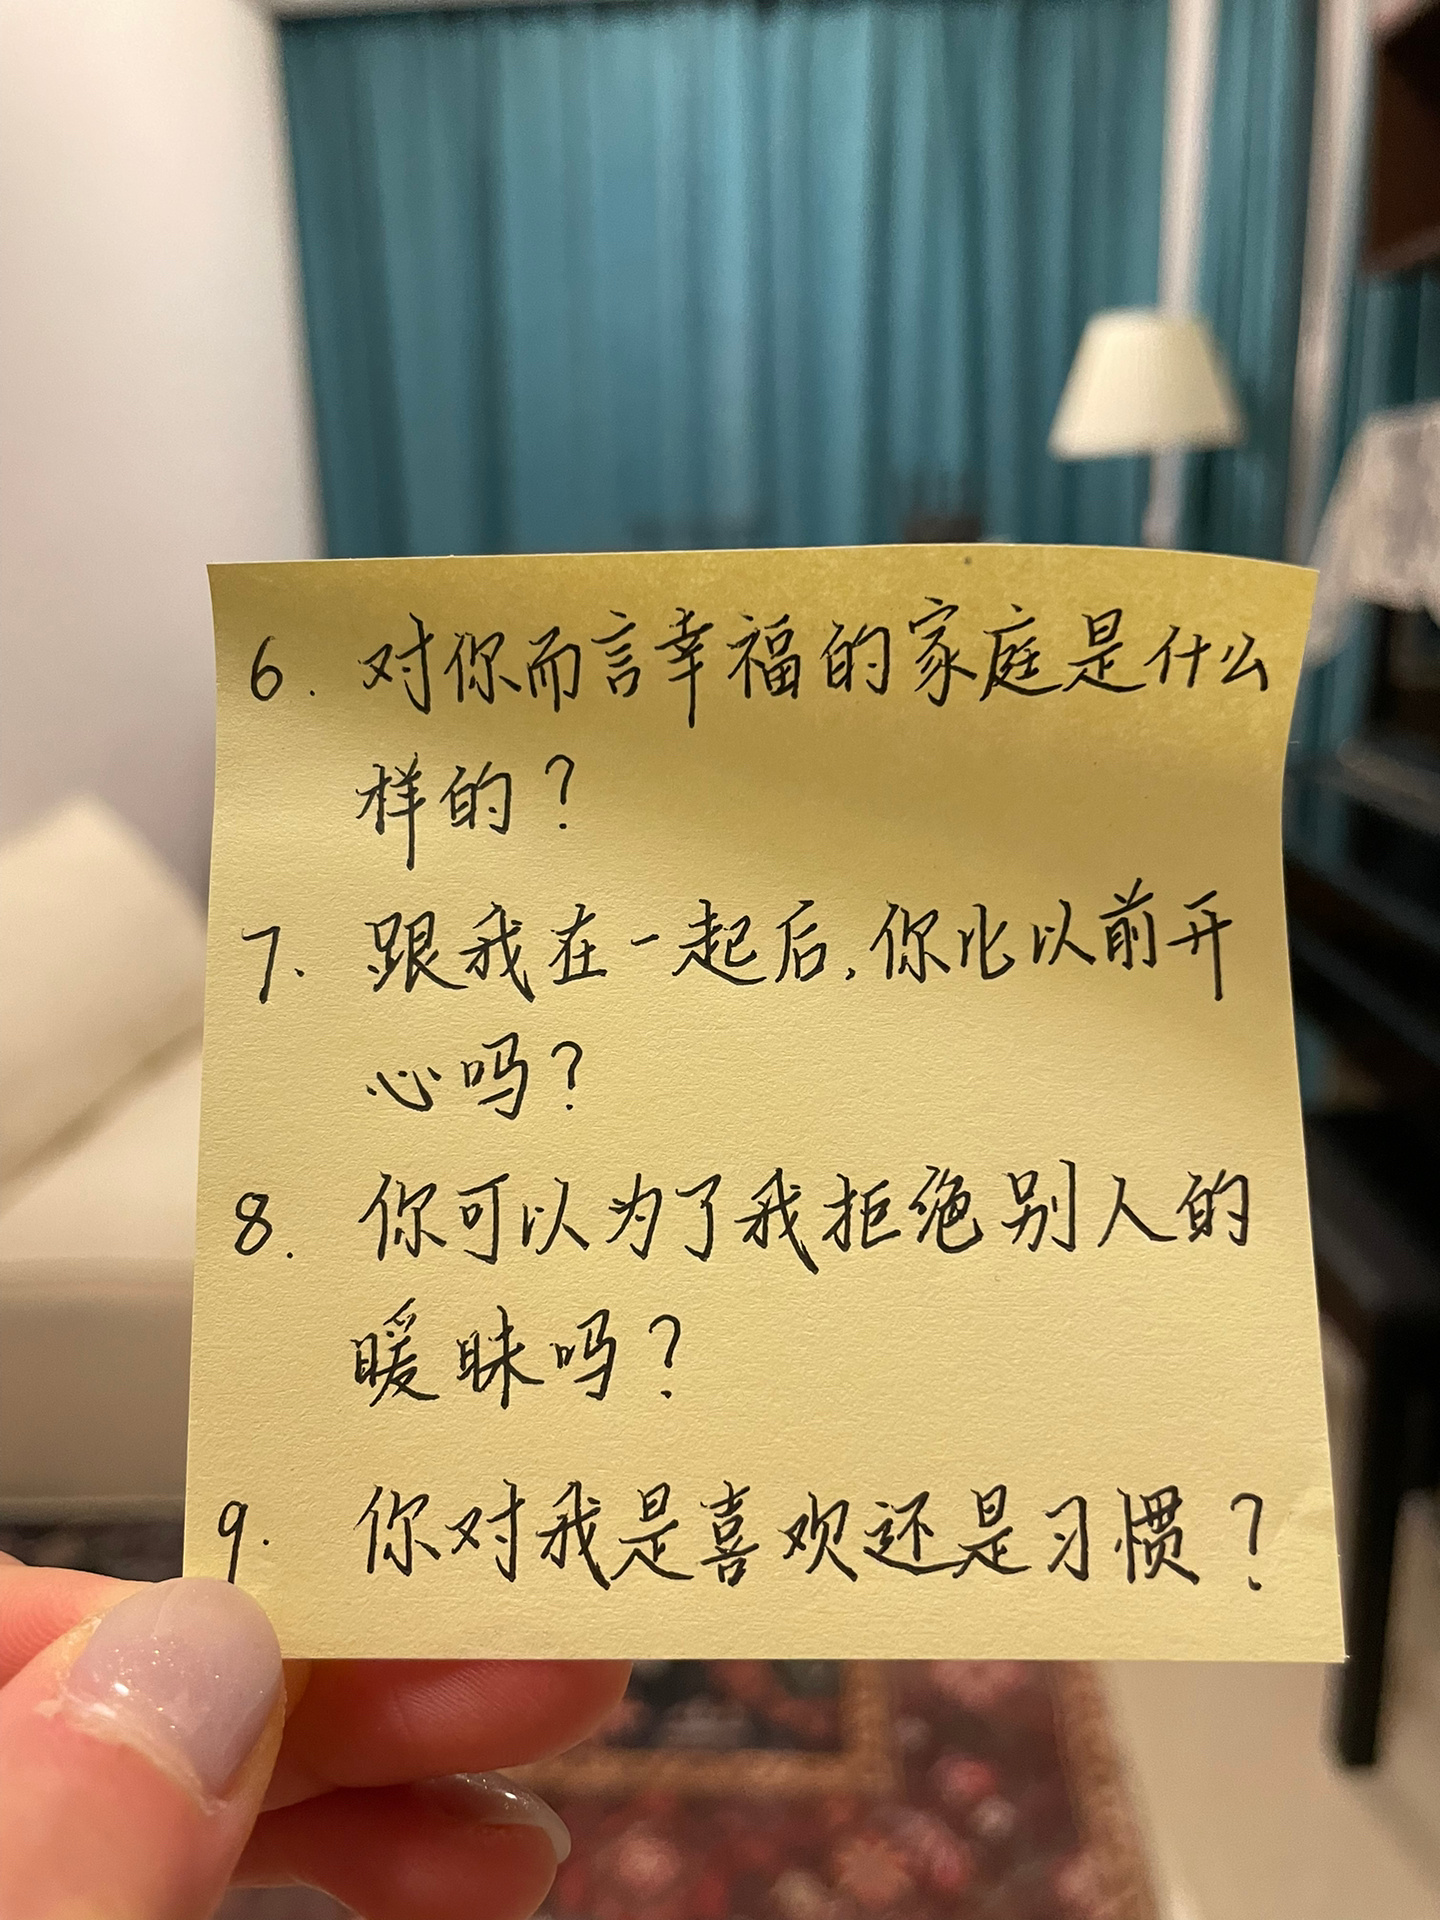 6. 对你而言幸福的家庭是什么
样的?
7. 跟我在一起后,你比以前开
心吗?
8. 你可以为了我拒绝别人的
暧昧吗?
9. 你对我是喜欢还是习惯?